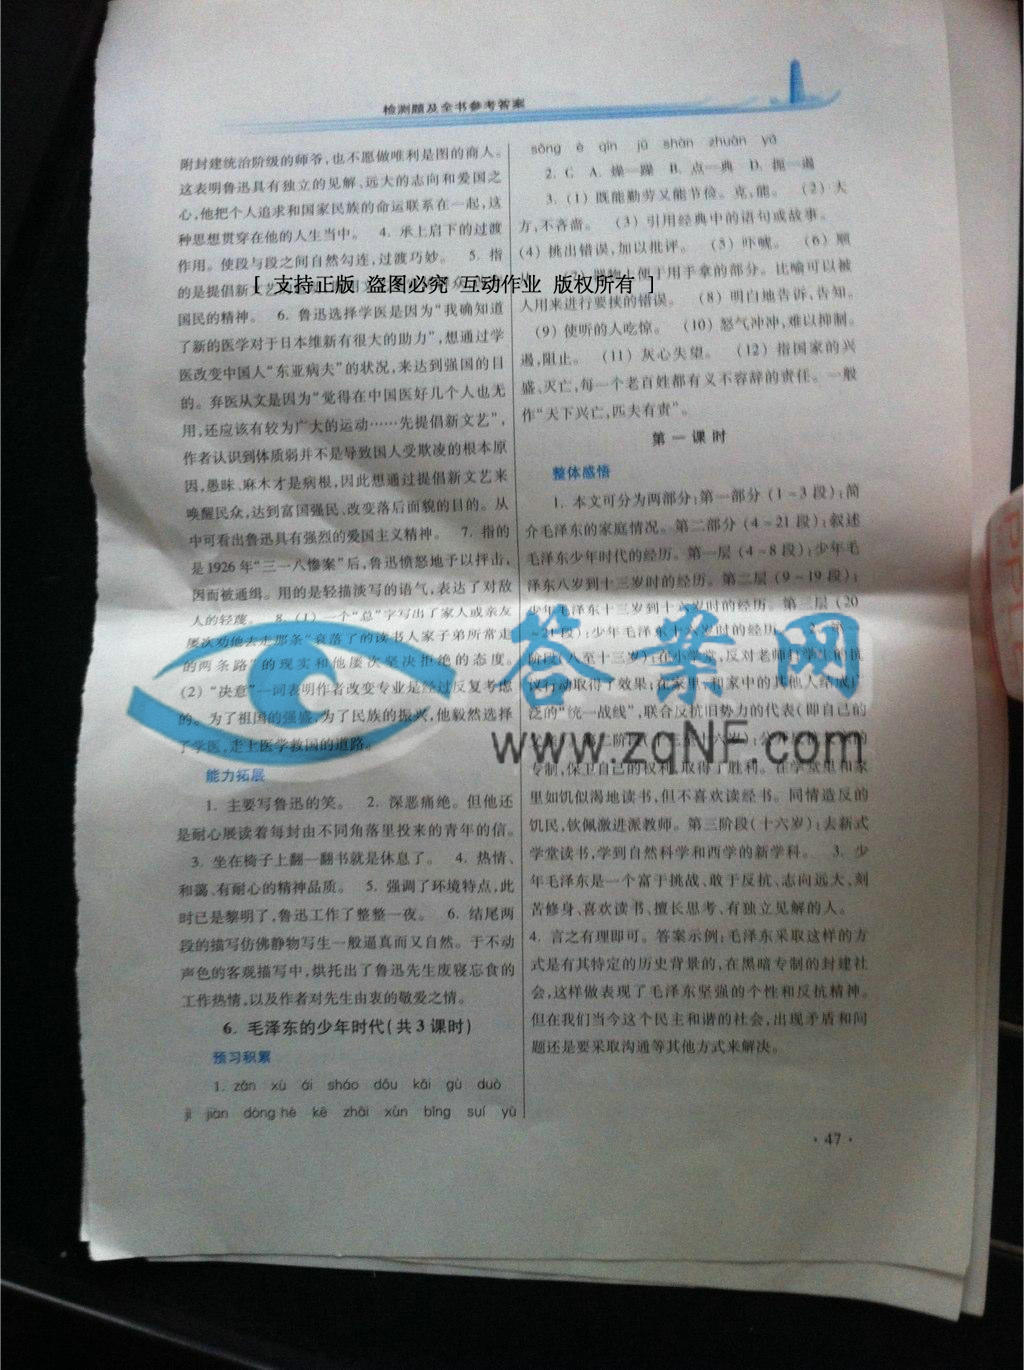 检测题及全书参考答案
附封建统治阶级的师爷,也不愿做唯利是图的商人。
这表明鲁迅具有独立的见解、远大的志向和爱国之
心,他把个人追求和国家民族的命运联系在一起,这
种思想贯穿在他的人生当中。 4. 承上启下的过渡
作用。使段与段之间自然勾连,过渡巧妙。 5. 指
的是提倡新文艺
[ 支持正版 盗图必究 互动作业 版权所有 ]
国民的精神。 6. 鲁迅选择学医是因为“我确知道
了新的医学对于日本维新有很大的助力”,想通过学
医改变中国人“东亚病夫”的状况,来达到强国的目
的。弃医从文是因为“觉得在中国医好几个人也无
用,还应该有较为广大的运动……先提倡新文艺”,
作者认识到体质弱并不是导致国人受欺凌的根本原
因,愚昧、麻木才是病根,因此想通过提倡新文艺来
唤醒民众,达到富国强民、改变落后面貌的目的。从
中可看出鲁迅具有强烈的爱国主义精神。 7. 指的
是1926年“三一八惨案”后,鲁迅愤怒地予以抨击,
因而被通缉。用的是轻描淡写的语气,表达了对敌
人的轻蔑。 8. (1) 一个“总”字写出了家人或亲友
屡次劝他去走那条“衰落了的读书人家子弟所常走
的两条路”的现实和他屡次坚决拒绝的态度。
(2) “决意”一词表明作者改变专业是经过反复考虑
的。为了祖国的强盛,为了民族的振兴,他毅然选择
了学医,走上医学救国的道路。
能力拓展
1. 主要写鲁迅的笑。 2. 深恶痛绝。但他还
是耐心展读着每封由不同角落里投来的青年的信。
3. 坐在椅子上翻一翻书就是休息了。 4. 热情、
和蔼、有耐心的精神品质。 5. 强调了环境特点,此
时已是黎明了,鲁迅工作了整整一夜。 6. 结尾两
段的描写仿佛静物写生一般逼真而又自然。于不动
声色的客观描写中,烘托出了鲁迅先生废寝忘食的
工作热情,以及作者对先生由衷的敬爱之情。
6. 毛泽东的少年时代(共3课时)
预习积累
1. zǎn xù ái sháo dǒu kǎi gù duò
jì jiàn dòng hé kè zhāi xùn bǐng suí yù
sǒng è qín jǔ shàn zhuàn yǎ
2. C A. 燥—躁 B. 点—典 D. 扼—遏
3. (1) 既能勤劳又能节俭。克,能。 (2) 大
方,不吝啬。 (3) 引用经典中的语句或故事。
(4) 挑出错误,加以批评。 (5) 吓唬。 (6) 顺
(7) 器物上便于用手拿的部分。比喻可以被
人用来进行要挟的错误。 (8) 明白地告诉,告知。
(9) 使听的人吃惊。 (10) 怒气冲冲,难以抑制。
遏,阻止。 (11) 灰心失望。 (12) 指国家的兴
盛、灭亡,每一个老百姓都有义不容辞的责任。一般
作“天下兴亡,匹夫有责”。
第一课时
整体感悟
1. 本文可分为两部分:第一部分 (1~3段):简
介毛泽东的家庭情况。第二部分 (4~21段):叙述
毛泽东少年时代的经历。第一层 (4~8段):少年毛
泽东八岁到十三岁时的经历。第二层 (9~19段):
少年毛泽东十三岁到十六岁时的经历。第三层 (20
~21段):少年毛泽东十六岁时的经历。 2. 第一
阶段(八至十三岁):在小学堂,反对老师对学生的抗
议行动取得了效果;在家里,和家中的其他人结成广
泛的“统一战线”,联合反抗旧势力的代表(即自己的
专制,保卫自己的权利,取得了胜利。在学堂里和家
里如饥似渴地读书,但不喜欢读经书。同情造反的
饥民,钦佩激进派教师。第三阶段(十六岁):去新式
学堂读书,学到自然科学和西学的新学科。 3. 少
年毛泽东是一个富于挑战、敢于反抗、志向远大、刻
苦修身、喜欢读书、擅长思考、有独立见解的人。
4. 言之有理即可。答案示例:毛泽东采取这样的方
式是有其特定的历史背景的,在黑暗专制的封建社
会,这样做表现了毛泽东坚强的个性和反抗精神。
但在我们当今这个民主和谐的社会,出现矛盾和问
题还是要采取沟通等其他方式来解决。
答案网
www.zqNF.com
· 47 ·